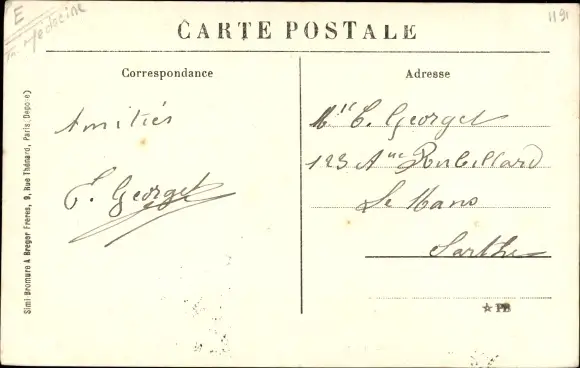 E
Médecine
1191
CARTE POSTALE
Correspondance
Adresse
Amitiés
F. Georget
Mlle E. Georget
123 Aue Bollée
Le Mans
Sarthe
Simi Bromure A. Breger Frères, 9, Rue Thénard, Paris (Déposé)
☆ PB